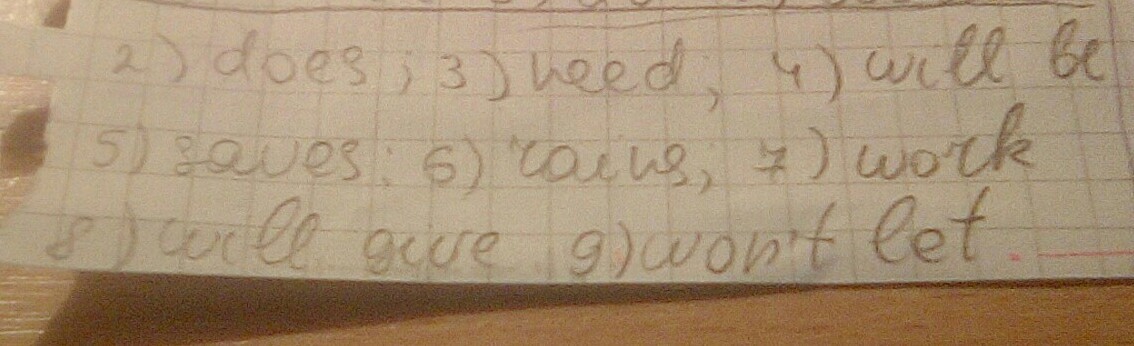 2) does; 3) need, 4) will be
5) saves; 6) rains, 7) work
8) will give 9) won't let.